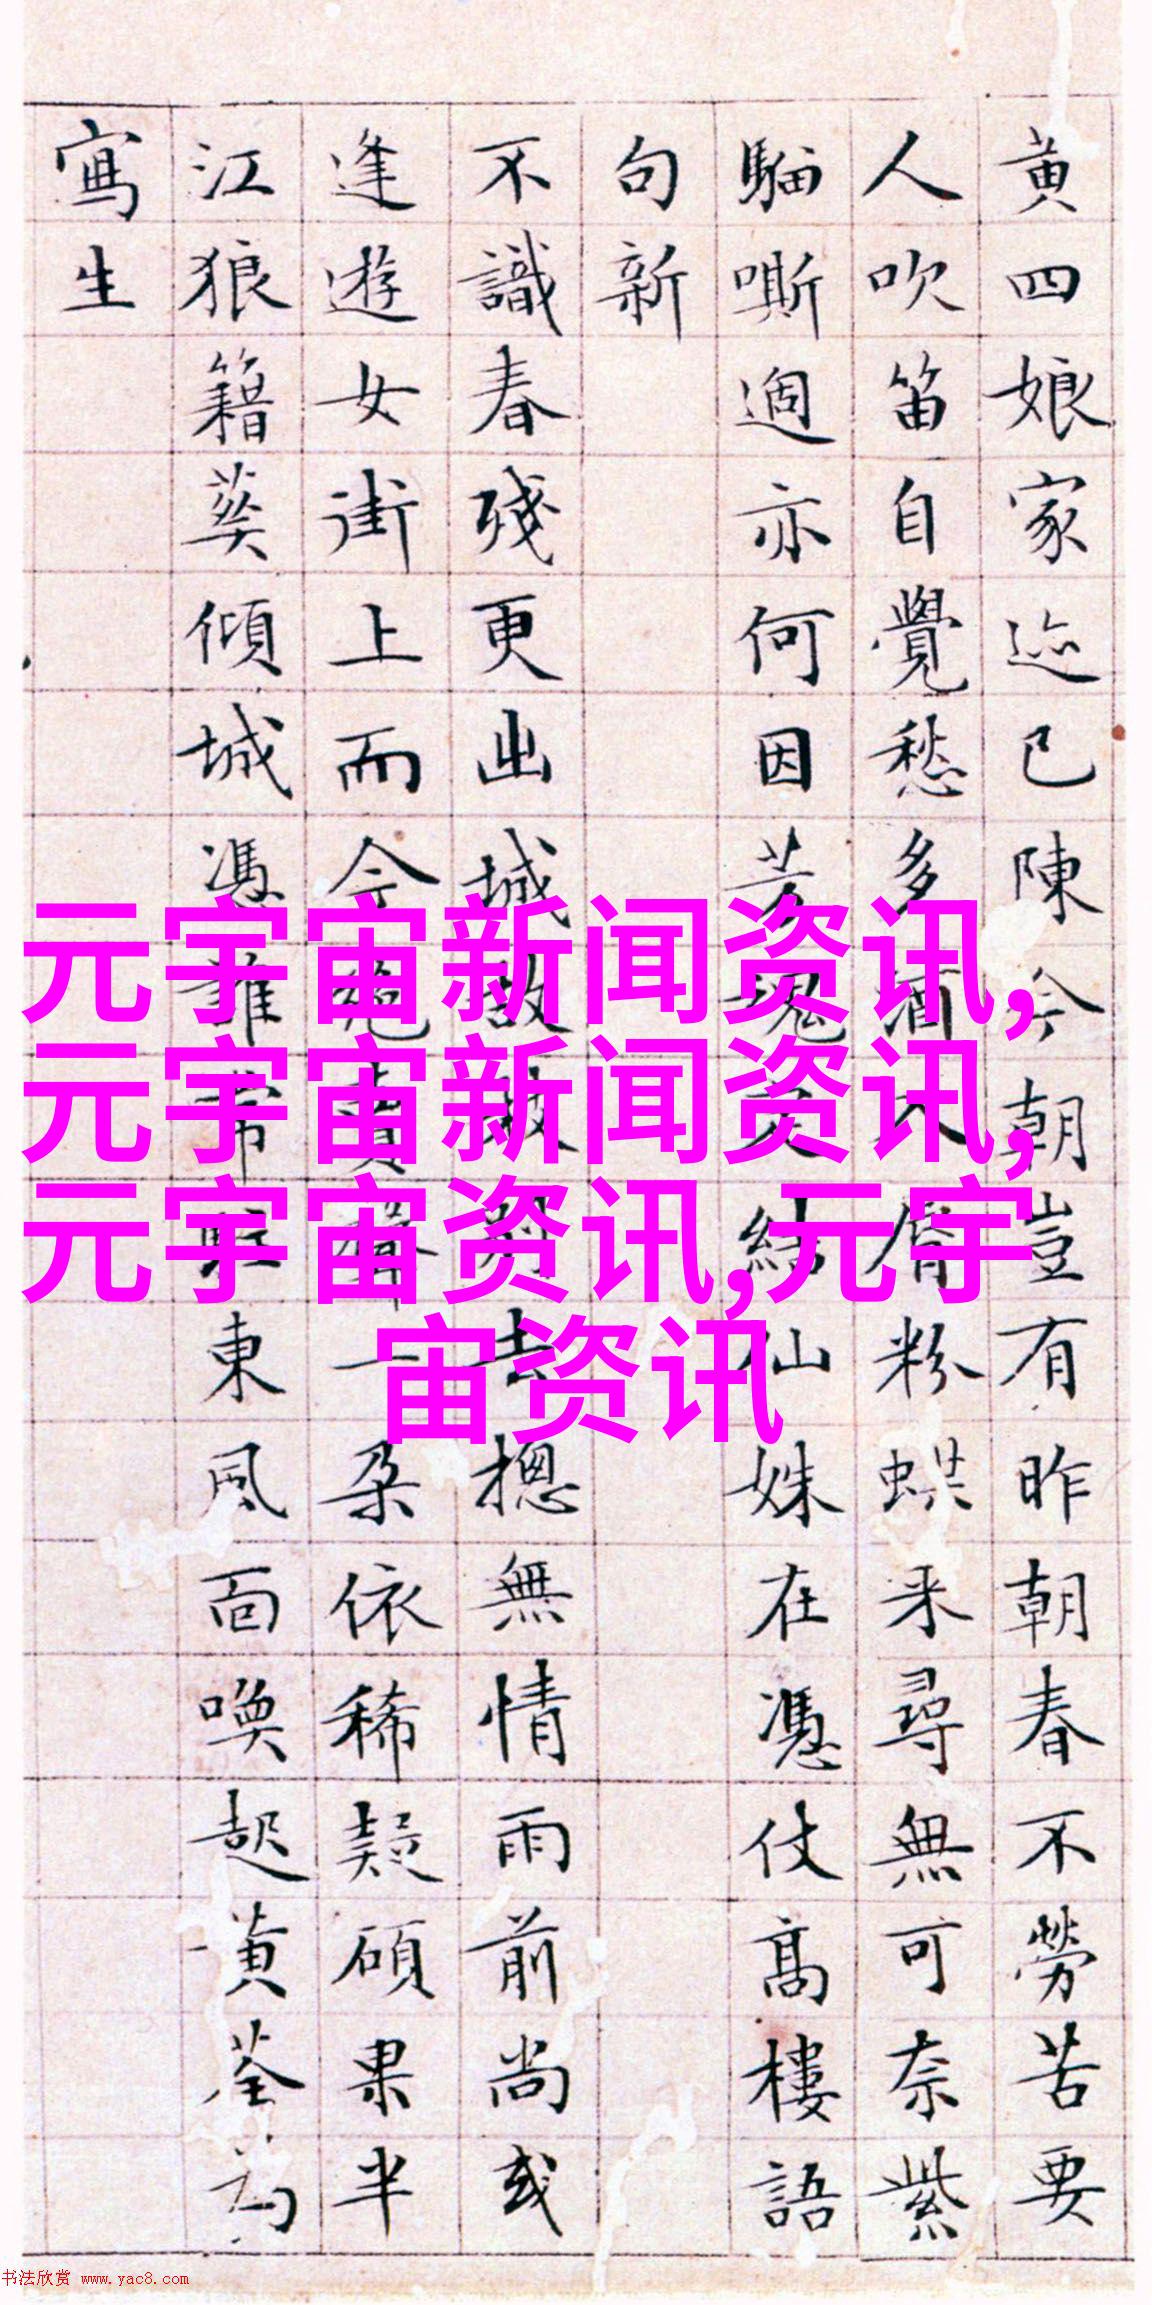 黄四娘家迹已陳今朝豈有昨朝春不勞苦要
人吹笛自覺愁多酒入唇粉蝶来尋無可奈紫
騮嘶過亦何因芳魂又結仙姝在憑仗高樓語
句新
不識春殘更出城故故别去摠無情雨前尚或
逢遊女街上而今絶賣聲一朶依稀疑碩果半
江狼籍葵傾城憑誰常駐東風面喚起黄荃為
寫生
元宇宙新闻资讯,
元宇宙新闻资讯,
元宇宙资讯,元宇
宙资讯
书法欣赏 www.yac8.com